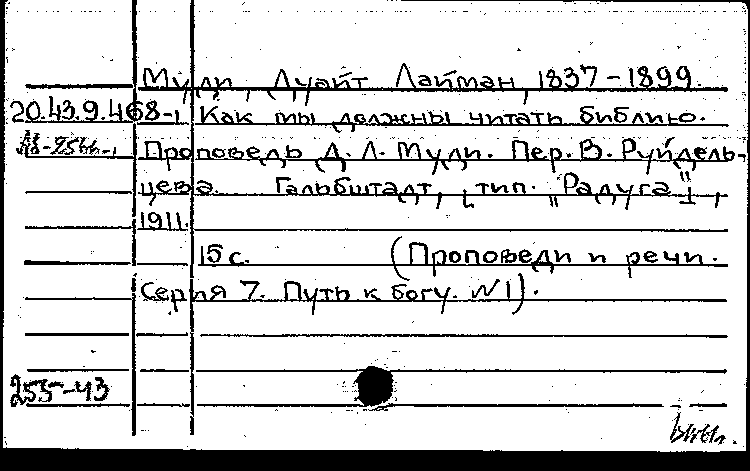 Муди, Дуайт Лайман, 1837-1899.
20.43.9.468-1 Как мы должны читать библию.
Проповедь Д. Л. Муди. Пер. В. Руйдель-
цева. Гальбштадт, [тип. "Радуга"],
1911.
15 с. (Проповеди и речи.
Серия 7. Путь к богу. №1).
255-43